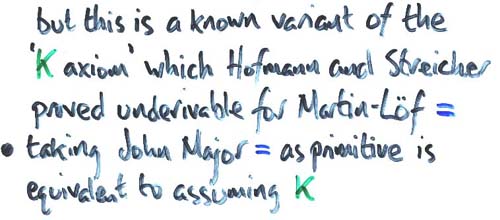 but this is a known variant of the
'K axiom' which Hofmann and Streicher
proved underivable for Martin-Löf =
• taking John Major = as primitive is
equivalent to assuming K